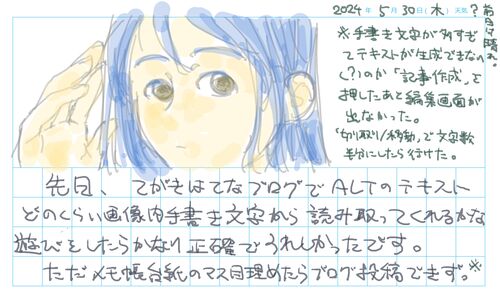 2024年 5月 30日(木) 天気?
前日夕晴れ。
※手書き文字が多すぎ
てテキストが生成できない
(?)のか「記事作成」を
押したあと編集画面が
出なかった。
「切り取り/移動」で文字数
半分にしたら行けた。
先日、てがきはてなブログでALTのテキスト
どのくらい画像内手書き文字から読み取ってくれるかな
遊びをしたらかなり正確でうれしかったです。
ただメモ帳台紙のマス目埋めたらブログ投稿できず。※